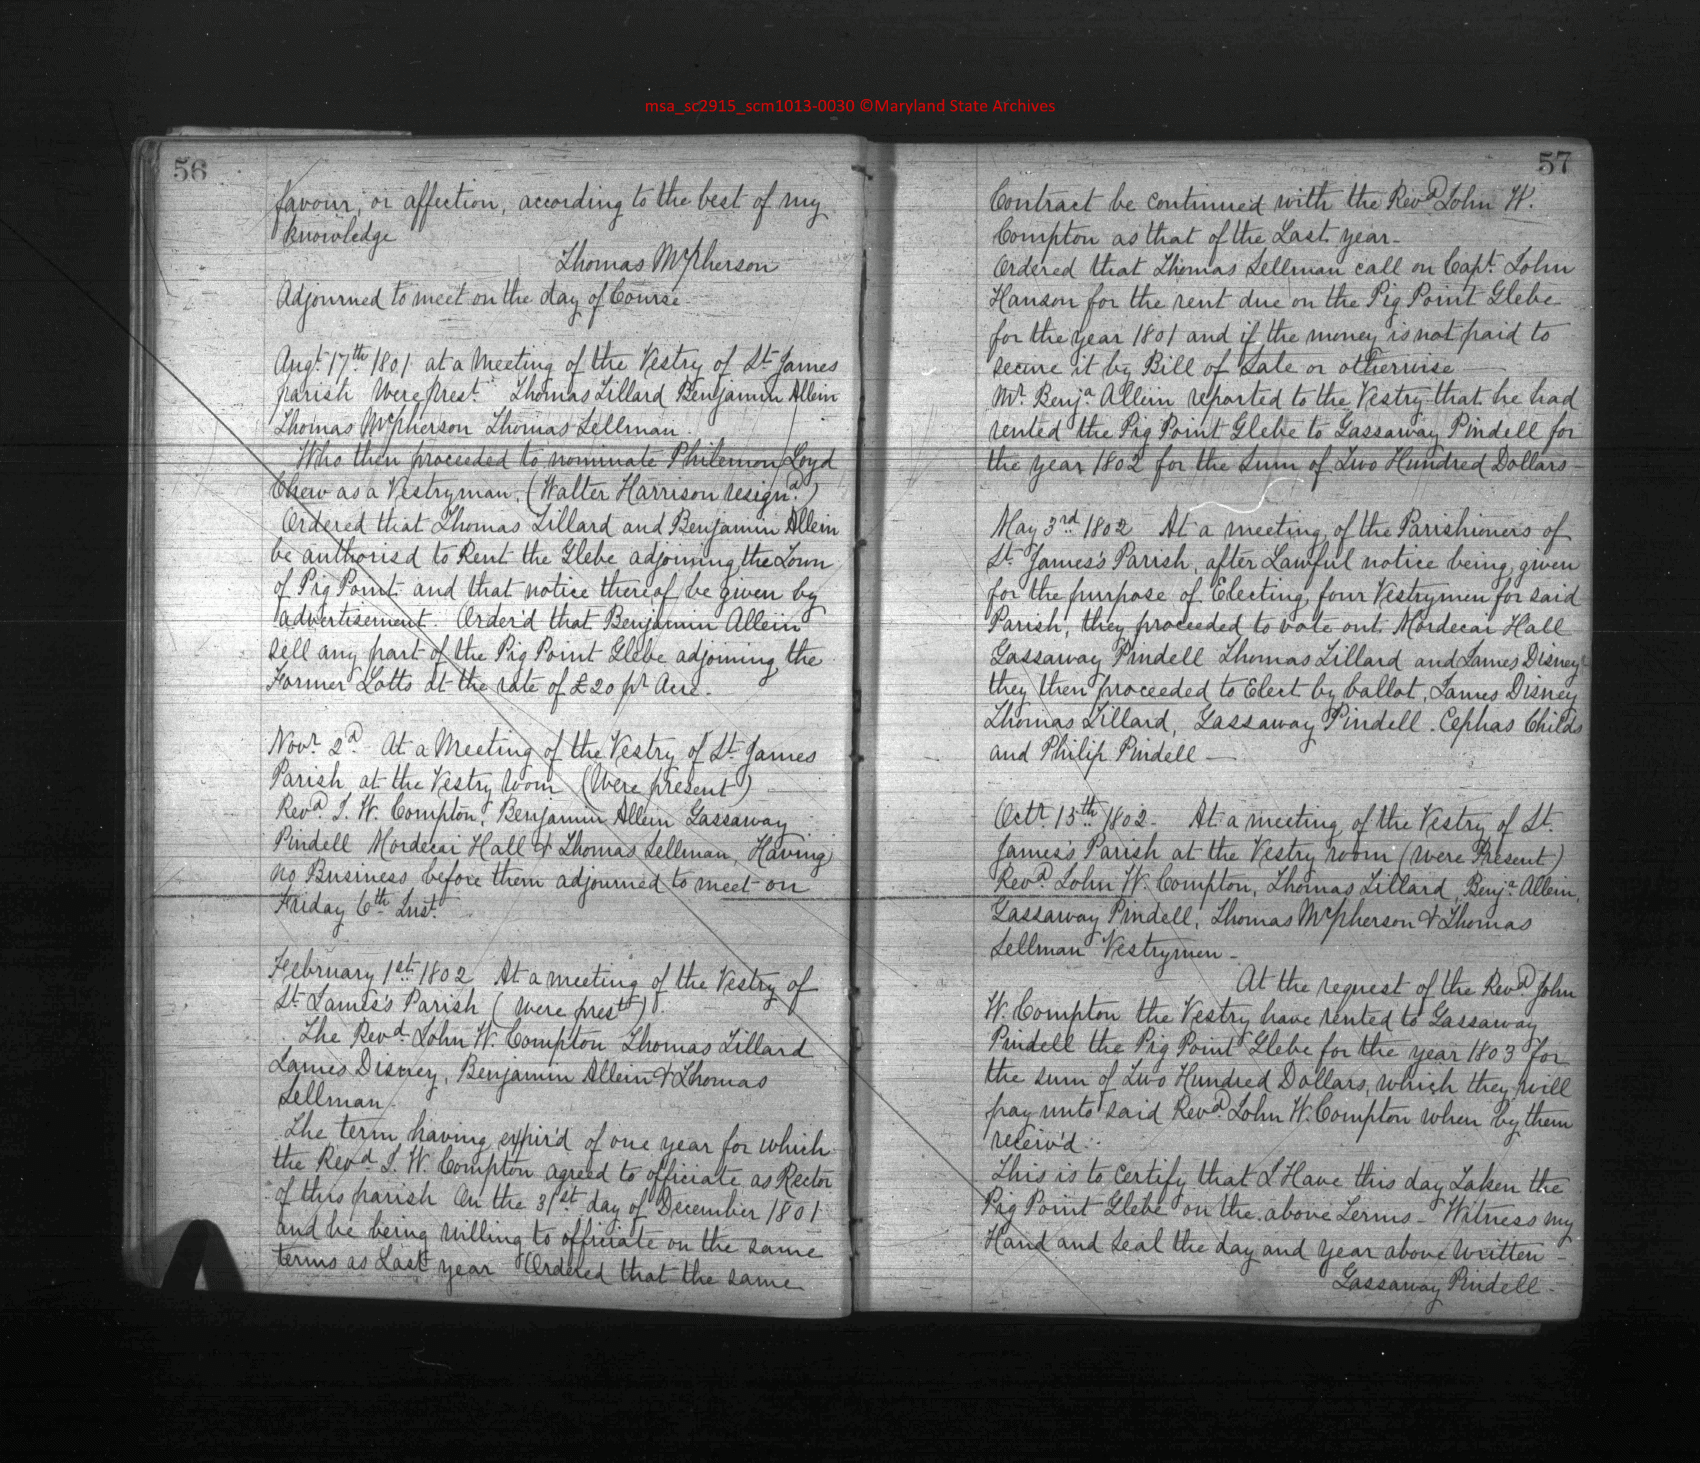 msa_sc2915_scm1013-0030 ©Maryland State Archives
56
favour, or affection, according to the best of my
knowledge
Thomas McPherson
Adjourned to meet on the day of Course.
Augt. 17th 1801 at a Meeting of the Vestry of St. James
parish Were prest. Thomas Tillard Benjamin Allein
Thomas McPherson Thomas Sellman.
Who then proceeded to nominate Philemon Loyd
Chew as a Vestryman. (Walter Harrison resignd.)
Ordered that Thomas Tillard and Benjamin Allein
be authorisd to Rent the Glebe adjoining the Town
of Pig Point and that notice thereof be given by
advertisement. Order'd that Benjamin Allein
sell any part of the Pig Point Glebe adjoining the
Former Lotts at the rate of £20 pr Acre.
Novr. 2d. At a Meeting of the Vestry of St. James
Parish at the Vestry room (Were present)
Revd. J. W. Compton, Benjamin Allein Gassaway
Pindell Mordecai Hall & Thomas Sellman, Having
no Business before them adjourned to meet on
Friday 6th Inst.
February 1st. 1802 At a meeting of the Vestry of
St. James's Parish (were prestt).
The Revd. John W. Compton Thomas Tillard
James Disney, Benjamin Allein & Thomas
Sellman.
The term having expir'd of one year for which
the Revd. J. W. Compton agreed to officiate as Rector
of this parish On the 31st day of December 1801
and he being willing to officiate on the same
terms as Last year Ordered that the same
57
Contract be continued with the Revd. John W.
Compton as that of the Last year-
Ordered that Thomas Sellman call on Capt. John
Hanson for the rent due on the Pig Point Glebe
for the year 1801 and if the money is not paid to
secure it by Bill of Sale or otherwise
Mr. Benja. Allein reported to the Vestry that he had
rented the Pig Point Glebe to Gassaway Pindell for
the year 1802 for the Sum of Two Hundred Dollars-
May 3rd. 1802 At a meeting of the Parishioners of
St. James's Parish, after Lawful notice being given
for the purpose of Electing four Vestrymen for said
Parish, they proceeded to vote out. Mordecai Hall
Gassaway Pindell Thomas Tillard and James Disney
they then proceeded to Elect by ballot, James Disney
Thomas Tillard, Gassaway Pindell. Cephas Childs
and Philip Pindell -
Octr. 15th 1802. At a meeting of the Vestry of St.
James's Parish at the Vestry room (were Present)
Revd. John W. Compton, Thomas Tillard, Benja. Allein,
Gassaway Pindell, Thomas McPherson & Thomas
Sellman Vestrymen -
At the request of the Revd. John
W. Compton the Vestry have rented to Gassaway
Pindell the Pig Point Glebe for the year 1803 for
the sum of Two Hundred Dollars, which they will
pay unto said Revd. John W. Compton when by them
receiv'd.
This is to Certify that I Have this day Taken the
Pig Point Glebe on the above Terms - Witness my
Hand and Seal the day and year above Written -
Gassaway Pindell.